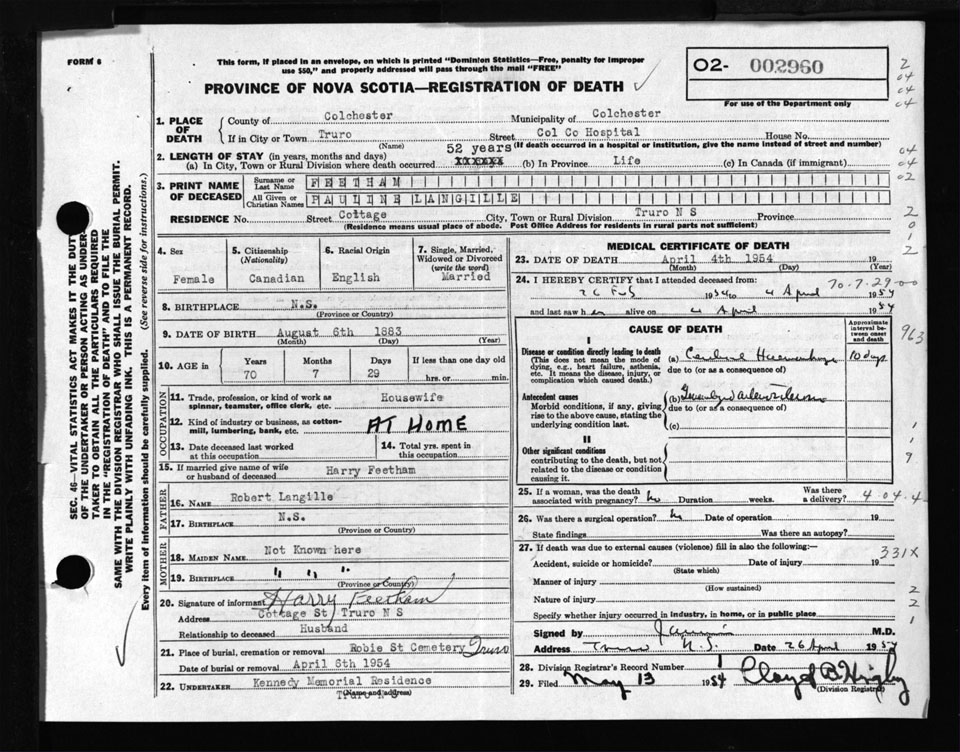 FORM 6
This form, if placed in an envelope, on which is printed "Dominion Statistics—Free, penalty for improper
use $50," and properly addressed will pass through the mail "FREE"
O2- 002960
For use of the Department only
PROVINCE OF NOVA SCOTIA—REGISTRATION OF DEATH ✓
1. PLACE OF DEATH
County of Colchester Municipality of Colchester
If in City or Town Truro Street Col Co Hospital House No.
(Name) (If death occurred in a hospital or institution, give the name instead of street and number)
2. LENGTH OF STAY (in years, months and days) 52 years
(a) In City, Town or Rural Division where death occurred xxxxxx (b) In Province Life (c) In Canada (if immigrant)
3. PRINT NAME OF DECEASED
Surname or Last Name FEETHAM
All Given or Christian Names PAULINE LANGILLE
RESIDENCE No. Street Cottage City, Town or Rural Division Truro N S Province
(Residence means usual place of abode. Post Office Address for residents in rural parts not sufficient)
4. Sex Female
5. Citizenship (Nationality) Canadian
6. Racial Origin English
7. Single, Married, Widowed or Divorced (write the word) Married
8. BIRTHPLACE N.S.
(Province or Country)
9. DATE OF BIRTH August 6th 1883
(Month) (Day) (Year)
10. AGE IN Years 70 Months 7 Days 29 If less than one day old hrs. or min.
OCCUPATION
11. Trade, profession, or kind of work as spinner, teamster, office clerk, etc. Housewife
12. Kind of industry or business, as cotton-mill, lumbering, bank, etc. AT HOME
13. Date deceased last worked at this occupation
14. Total yrs. spent in this occupation
15. If married give name of wife or husband of deceased Harry Feetham
FATHER
16. NAME Robert Langille
17. BIRTHPLACE N.S.
(Province or Country)
MOTHER
18. MAIDEN NAME Not Known here
19. BIRTHPLACE " " "
(Province or Country)
20. Signature of informant Harry Feetham
Address Cottage St Truro N S
Relationship to deceased Husband
21. Place of burial, cremation or removal Robie St Cemetery Truro
Date of burial or removal April 6th 1954
22. UNDERTAKER Kennedy Memorial Residence
(Name and address)
Truro N S
MEDICAL CERTIFICATE OF DEATH
23. DATE OF DEATH April 4th 1954 19
(Month) (Day) (Year)
24. I HEREBY CERTIFY that I attended deceased from: 70-7-29-00
26 Feb 1954 to 4 April 1954
and last saw her alive on 4 April 1954
CAUSE OF DEATH
Approximate interval between onset and death
I
Disease or condition directly leading to death
(This does not mean the mode of dying, e.g., heart failure, asthenia, etc. It means the disease, injury, or complication which caused death.)
(a) Cerebral Haemorrhage 10 days
due to (or as a consequence of)
Antecedent causes
Morbid conditions, if any, giving rise to the above cause, stating the underlying condition last.
(b)
due to (or as a consequence of)
(c)
II
Other significant conditions contributing to the death, but not related to the disease or condition causing it.
25. If a woman, was the death associated with pregnancy? No Duration weeks. Was there a delivery? 4 04.4
26. Was there a surgical operation? No Date of operation 19
State findings Was there an autopsy?
27. If death was due to external causes (violence) fill in also the following:— 331X
Accident, suicide or homicide? Date of injury 19
(State which)
Manner of injury
(How sustained)
Nature of injury
Specify whether injury occurred in industry, in home, or in public place
Signed by M.D.
Address Truro N.S. Date 26 April 1954
28. Division Registrar's Record Number
29. Filed May 13 1954
(Division Registrar)
SEC. 46—VITAL STATISTICS ACT MAKES IT THE DUTY
OF THE UNDERTAKER OR PERSON ACTING AS UNDER-
TAKER TO OBTAIN ALL THE PARTICULARS REQUIRED
IN THE "REGISTRATION OF DEATH" AND TO FILE THE
SAME WITH THE DIVISION REGISTRAR WHO SHALL ISSUE THE BURIAL PERMIT.
WRITE PLAINLY WITH UNFADING INK. THIS IS A PERMANENT RECORD.
Every item of information should be carefully supplied. (See reverse side for instructions.)
2
04
04
04
04
04
02
2
0
1
2
963
1
1
9
2
2
1